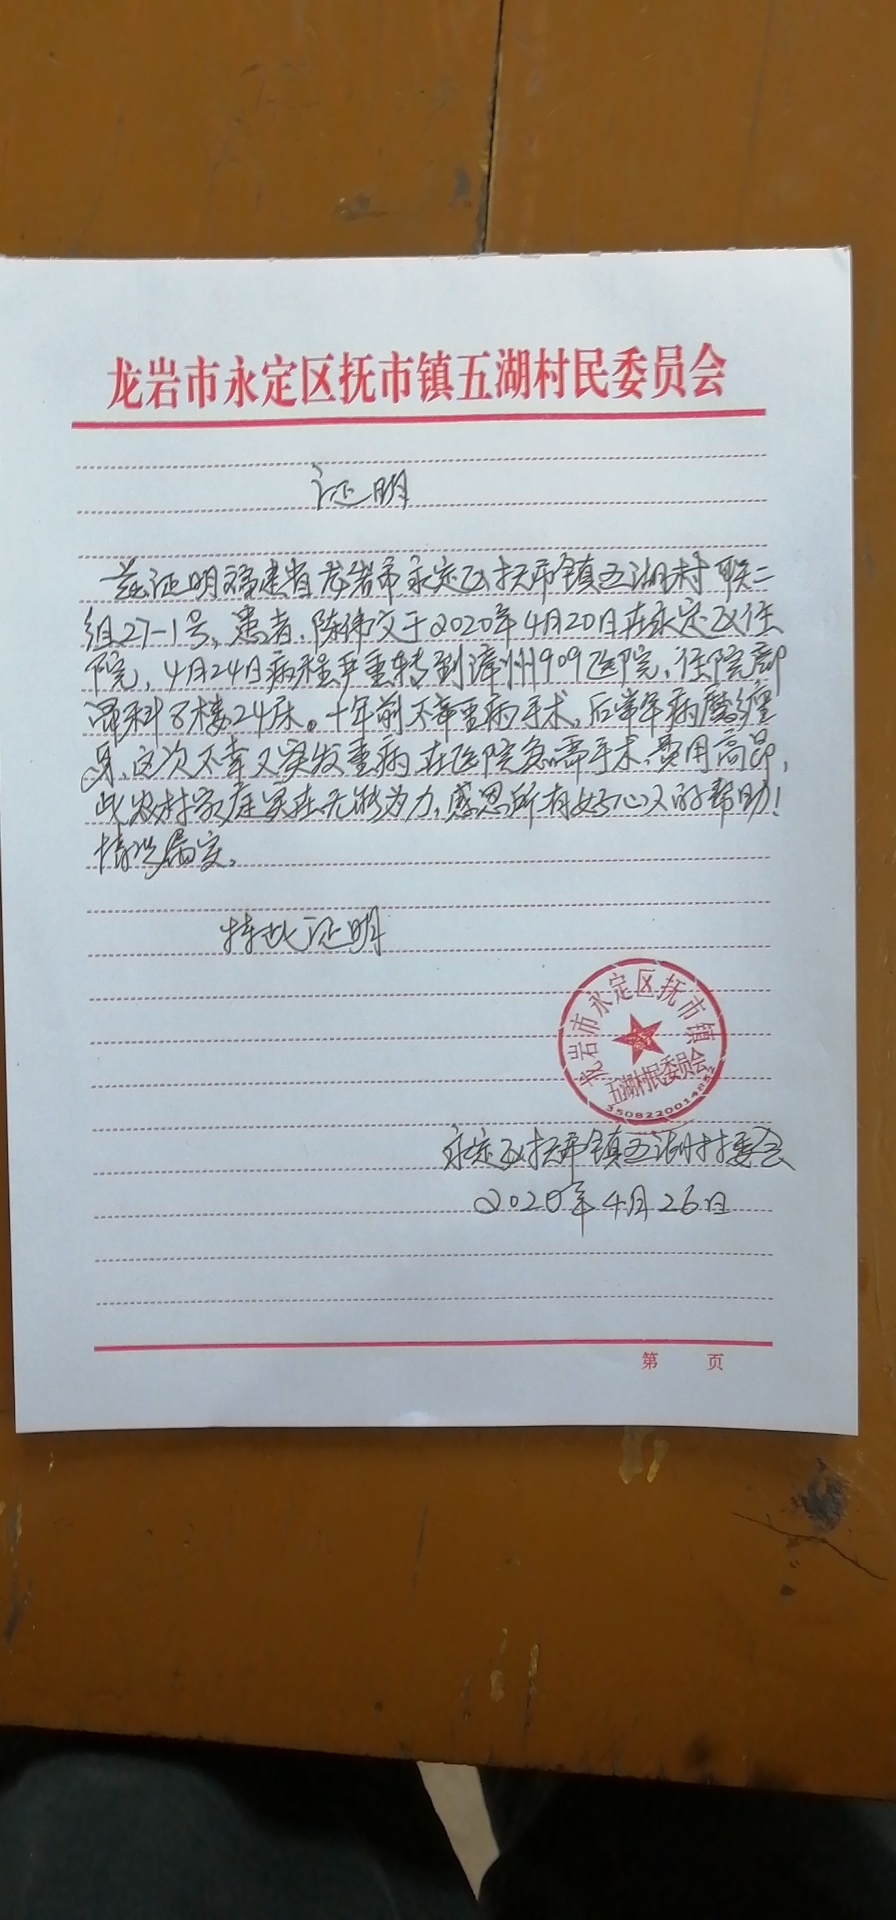 龙岩市永定区抚市镇五湖村民委员会
证明
兹证明福建省龙岩市永定区抚市镇五湖村联二
组27-1号，患者，陈伟文于2020年4月20日在永定区住
院，4月24日病程严重转到漳州909医院，住院部
科8楼24床。十年前不幸重病手术，后常年病魔缠
身，这次不幸又突发重病，在医院急需手术，费用高昂，
此农村家庭实在无能为力，感恩所有好心人的帮助！
情况属实。
特此证明
龙岩市永定区抚市镇
五湖村民委员会
永定区抚市镇五湖村村委会
2020年4月26日
第 页